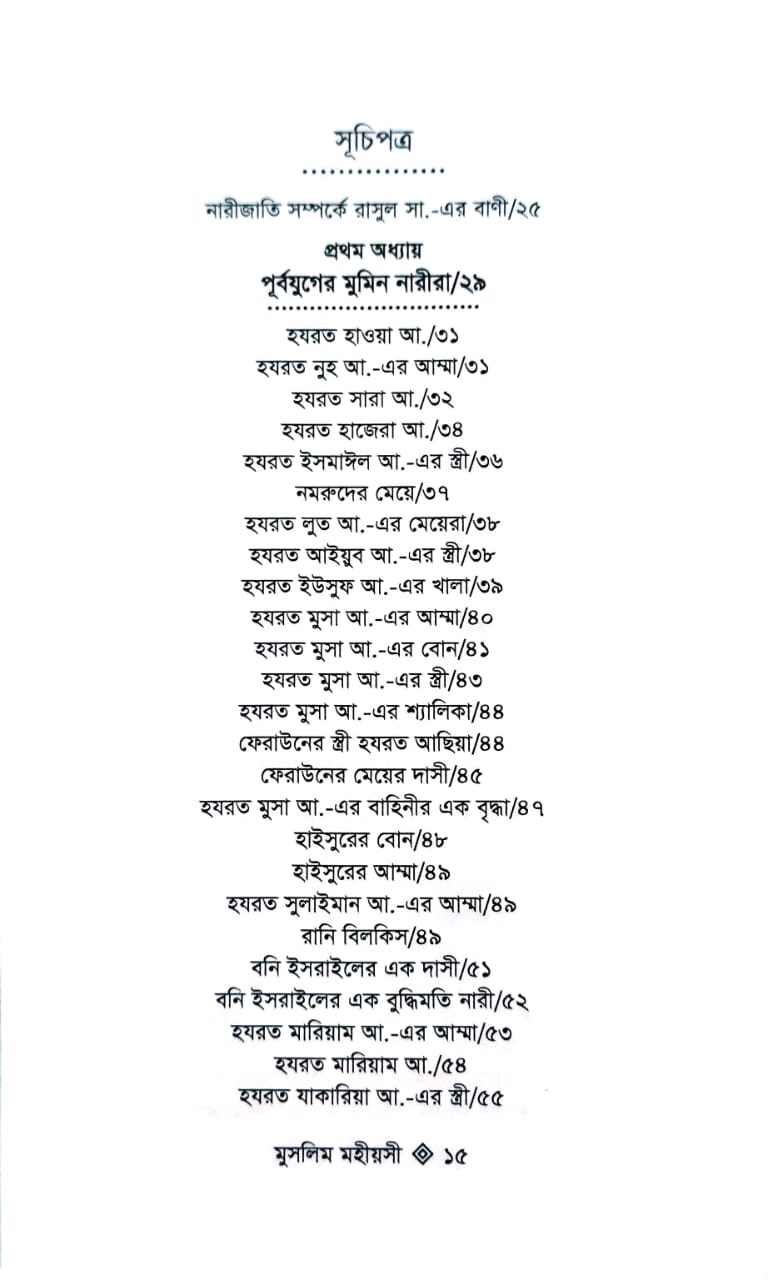 সূচিপত্র
নারীজাতি সম্পর্কে রাসুল সা.-এর বাণী/২৫
প্রথম অধ্যায়
পূর্বযুগের মুমিন নারীরা/২৯
হযরত হাওয়া আ./৩১
হযরত নুহ আ.-এর আম্মা/৩১
হযরত সারা আ./৩২
হযরত হাজেরা আ./৩৪
হযরত ইসমাঈল আ.-এর স্ত্রী/৩৬
নমরুদের মেয়ে/৩৭
হযরত লুত আ.-এর মেয়েরা/৩৮
হযরত আইয়ুব আ.-এর স্ত্রী/৩৮
হযরত ইউসুফ আ.-এর খালা/৩৯
হযরত মুসা আ.-এর আম্মা/৪০
হযরত মুসা আ.-এর বোন/৪১
হযরত মুসা আ.-এর স্ত্রী/৪৩
হযরত মুসা আ.-এর শ্যালিকা/৪৪
ফেরাউনের স্ত্রী হযরত আছিয়া/৪৪
ফেরাউনের মেয়ের দাসী/৪৫
হযরত মুসা আ.-এর বাহিনীর এক বৃদ্ধা/৪৭
হাইসুরের বোন/৪৮
হাইসুরের আম্মা/৪৯
হযরত সুলাইমান আ.-এর আম্মা/৪৯
রানি বিলকিস/৪৯
বনি ইসরাইলের এক দাসী/৫১
বনি ইসরাইলের এক বুদ্ধিমতি নারী/৫২
হযরত মারিয়াম আ.-এর আম্মা/৫৩
হযরত মারিয়াম আ./৫৪
হযরত যাকারিয়া আ.-এর স্ত্রী/৫৫
মুসলিম মহীয়সী ◈ ১৫